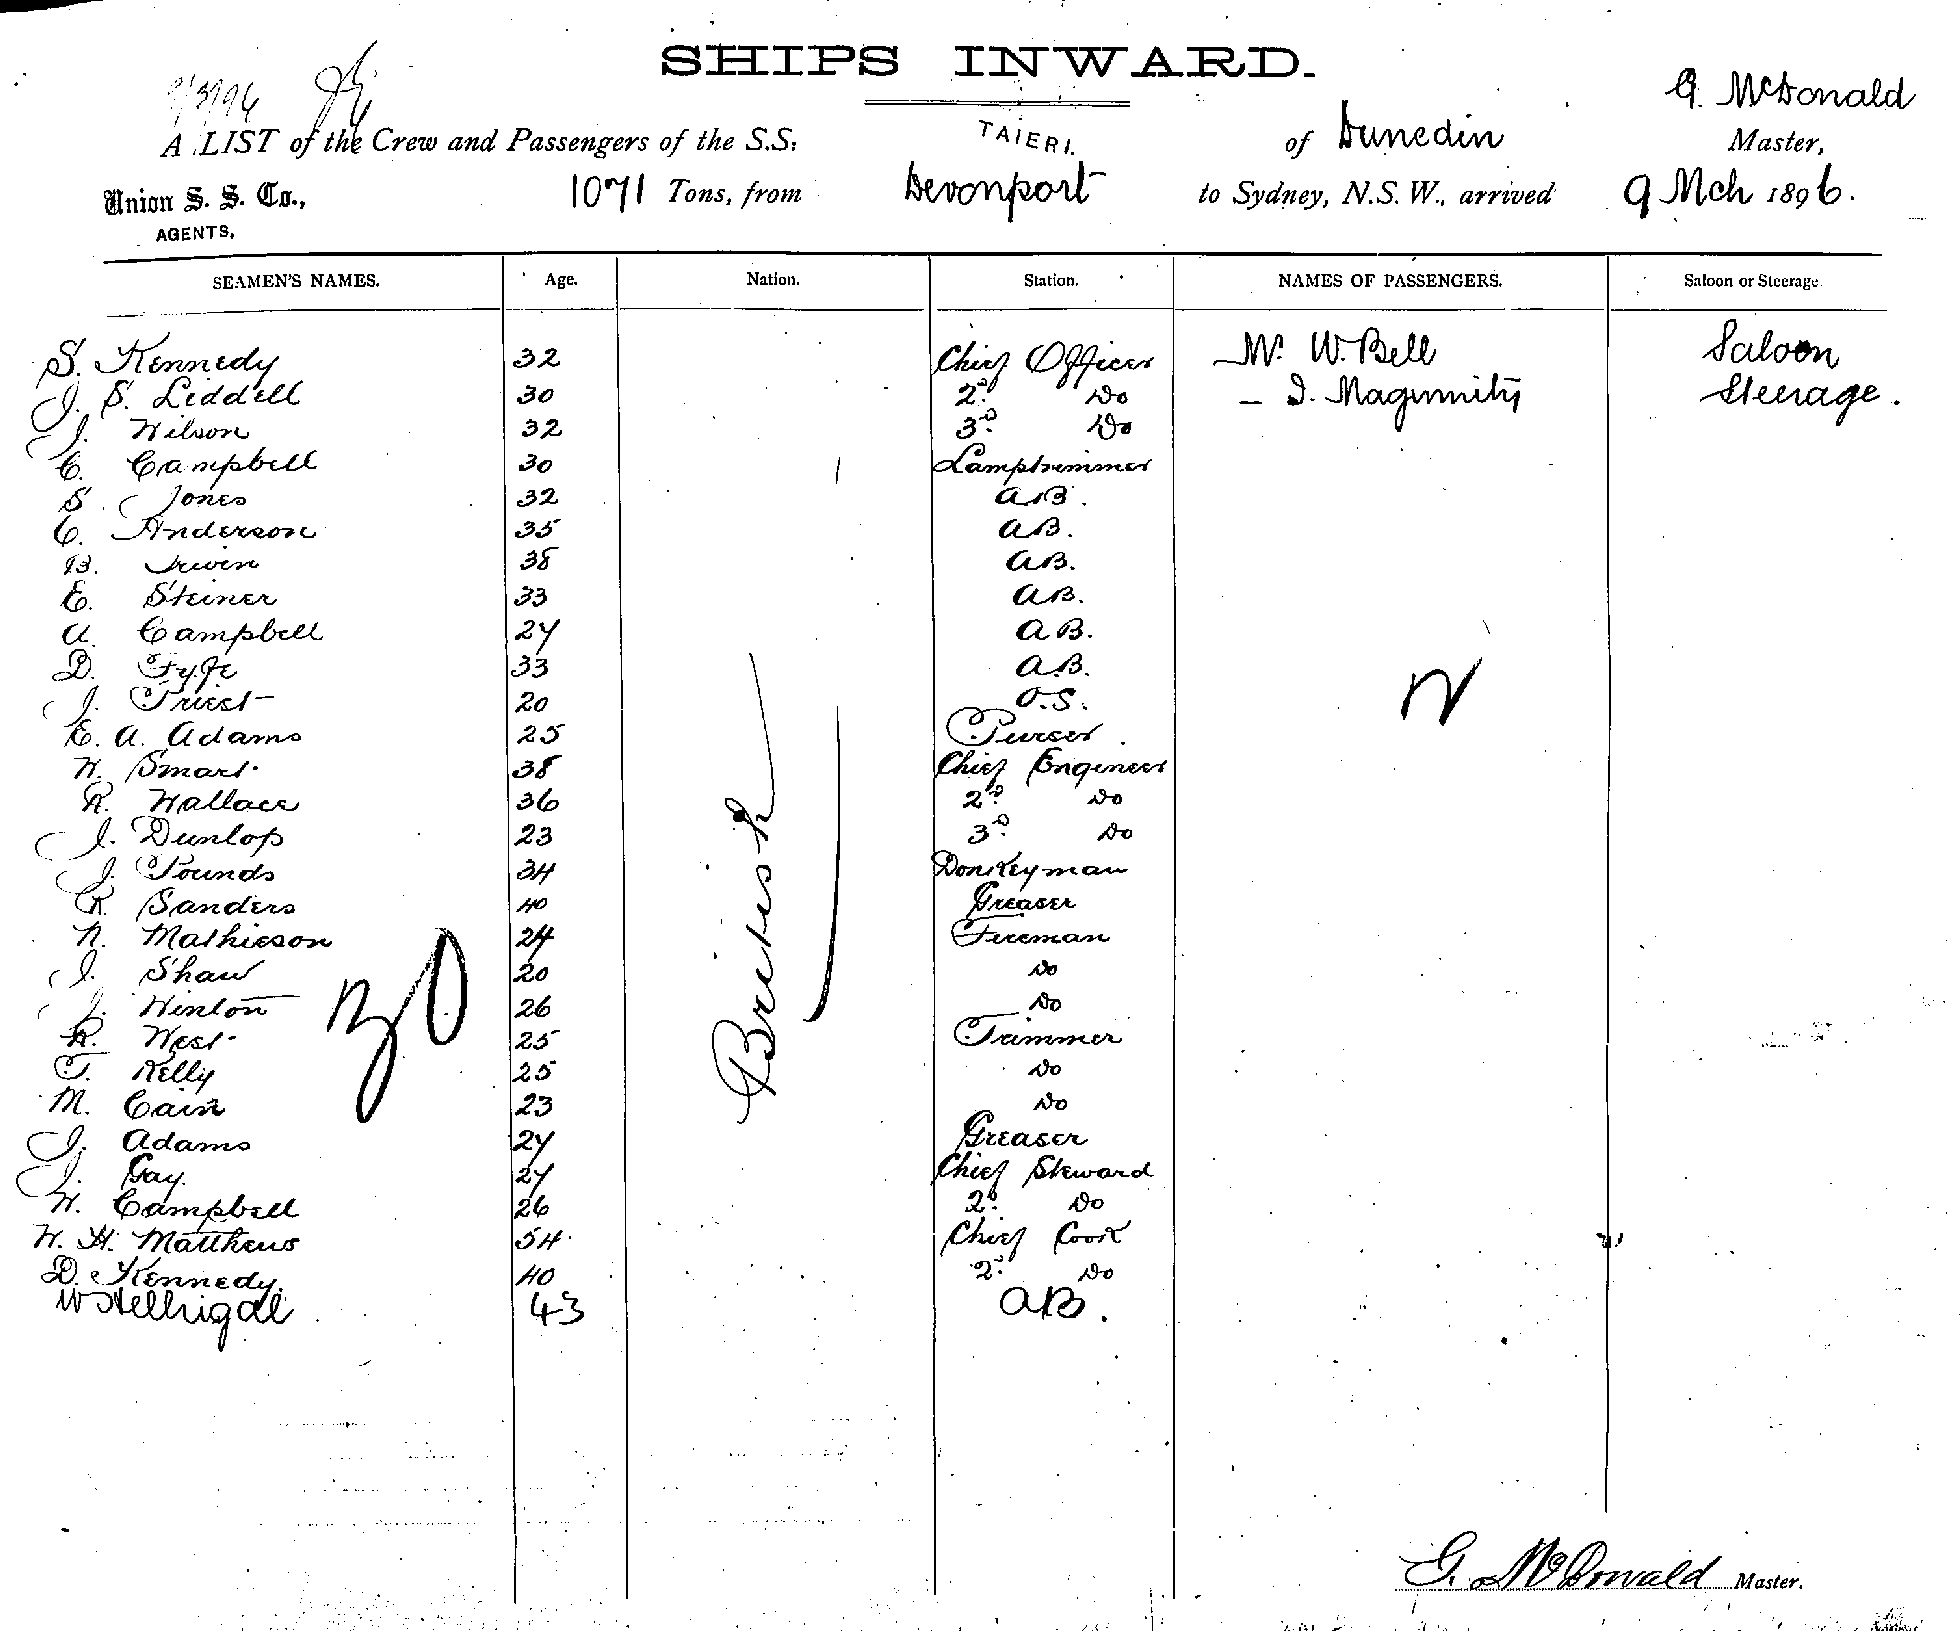 SHIPS INWARD.
9/3/96
G. McDonald
A LIST of the Crew and Passengers of the S.S. TAIERI. of Dunedin Master,
Union S. S. Co., 1071 Tons, from Devonport to Sydney, N.S.W., arrived 9 Mch 1896.
AGENTS,
SEAMEN'S NAMES. Age. Nation. Station. NAMES OF PASSENGERS. Saloon or Steerage
S. Kennedy 32 Chief Officer Mr. W. Bell Saloon
J. S. Liddell 30 2d Do - I. Maginnity Steerage.
J. Wilson 32 3d Do
C. Campbell 30 Lamptrimmer
S. Jones 32 AB.
C. Anderson 35 AB.
B. Irwin 38 AB.
E. Steiner 33 AB.
A. Campbell 27 AB.
D. Fyfe 33 A.B.
J. Priest 20 O.S.
E. A. Adams 25 Purser
W. Smart 38 Chief Engineer
R. Wallace 36 2d Do
J. Dunlop 23 3d Do
J. Pounds 34 Donkeyman
R. Sanders 40 Greaser
N. Mathieson 24 Fireman
J. Shaw 20 Do
J. Winton 26 Do
R. West 25 Trimmer
T. Kelly 25 Do
M. Cain 23 Do
J. Adams 27 Greaser
J. Gay. 27 Chief Steward
W. Campbell 26 2d Do
W. H. Matthews 54 Chief Cook
D. Kennedy. 40 2d Do
W 43 AB.
British
G. McDonald Master.